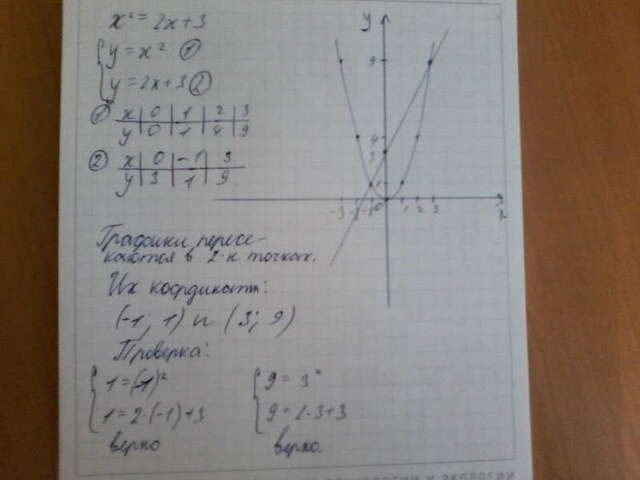 x² = 2x+3
y = x² ①
y = 2x+3 ②
① x | 0 | 1 | 2 | 3
y | 0 | 1 | 4 | 9
② x | 0 | -1 | 3
y | 3 | 1 | 9
y
9
4
3
1
-3 -2 -1 0 1 2 3
x
Графики пересе-
каются в 2-х точках.
Их координаты:
(-1; 1) и (3; 9)
Проверка:
1 = (-1)²
1 = 2·(-1)+3
верно
9 = 3²
9 = 2·3+3
верно.
и экологии